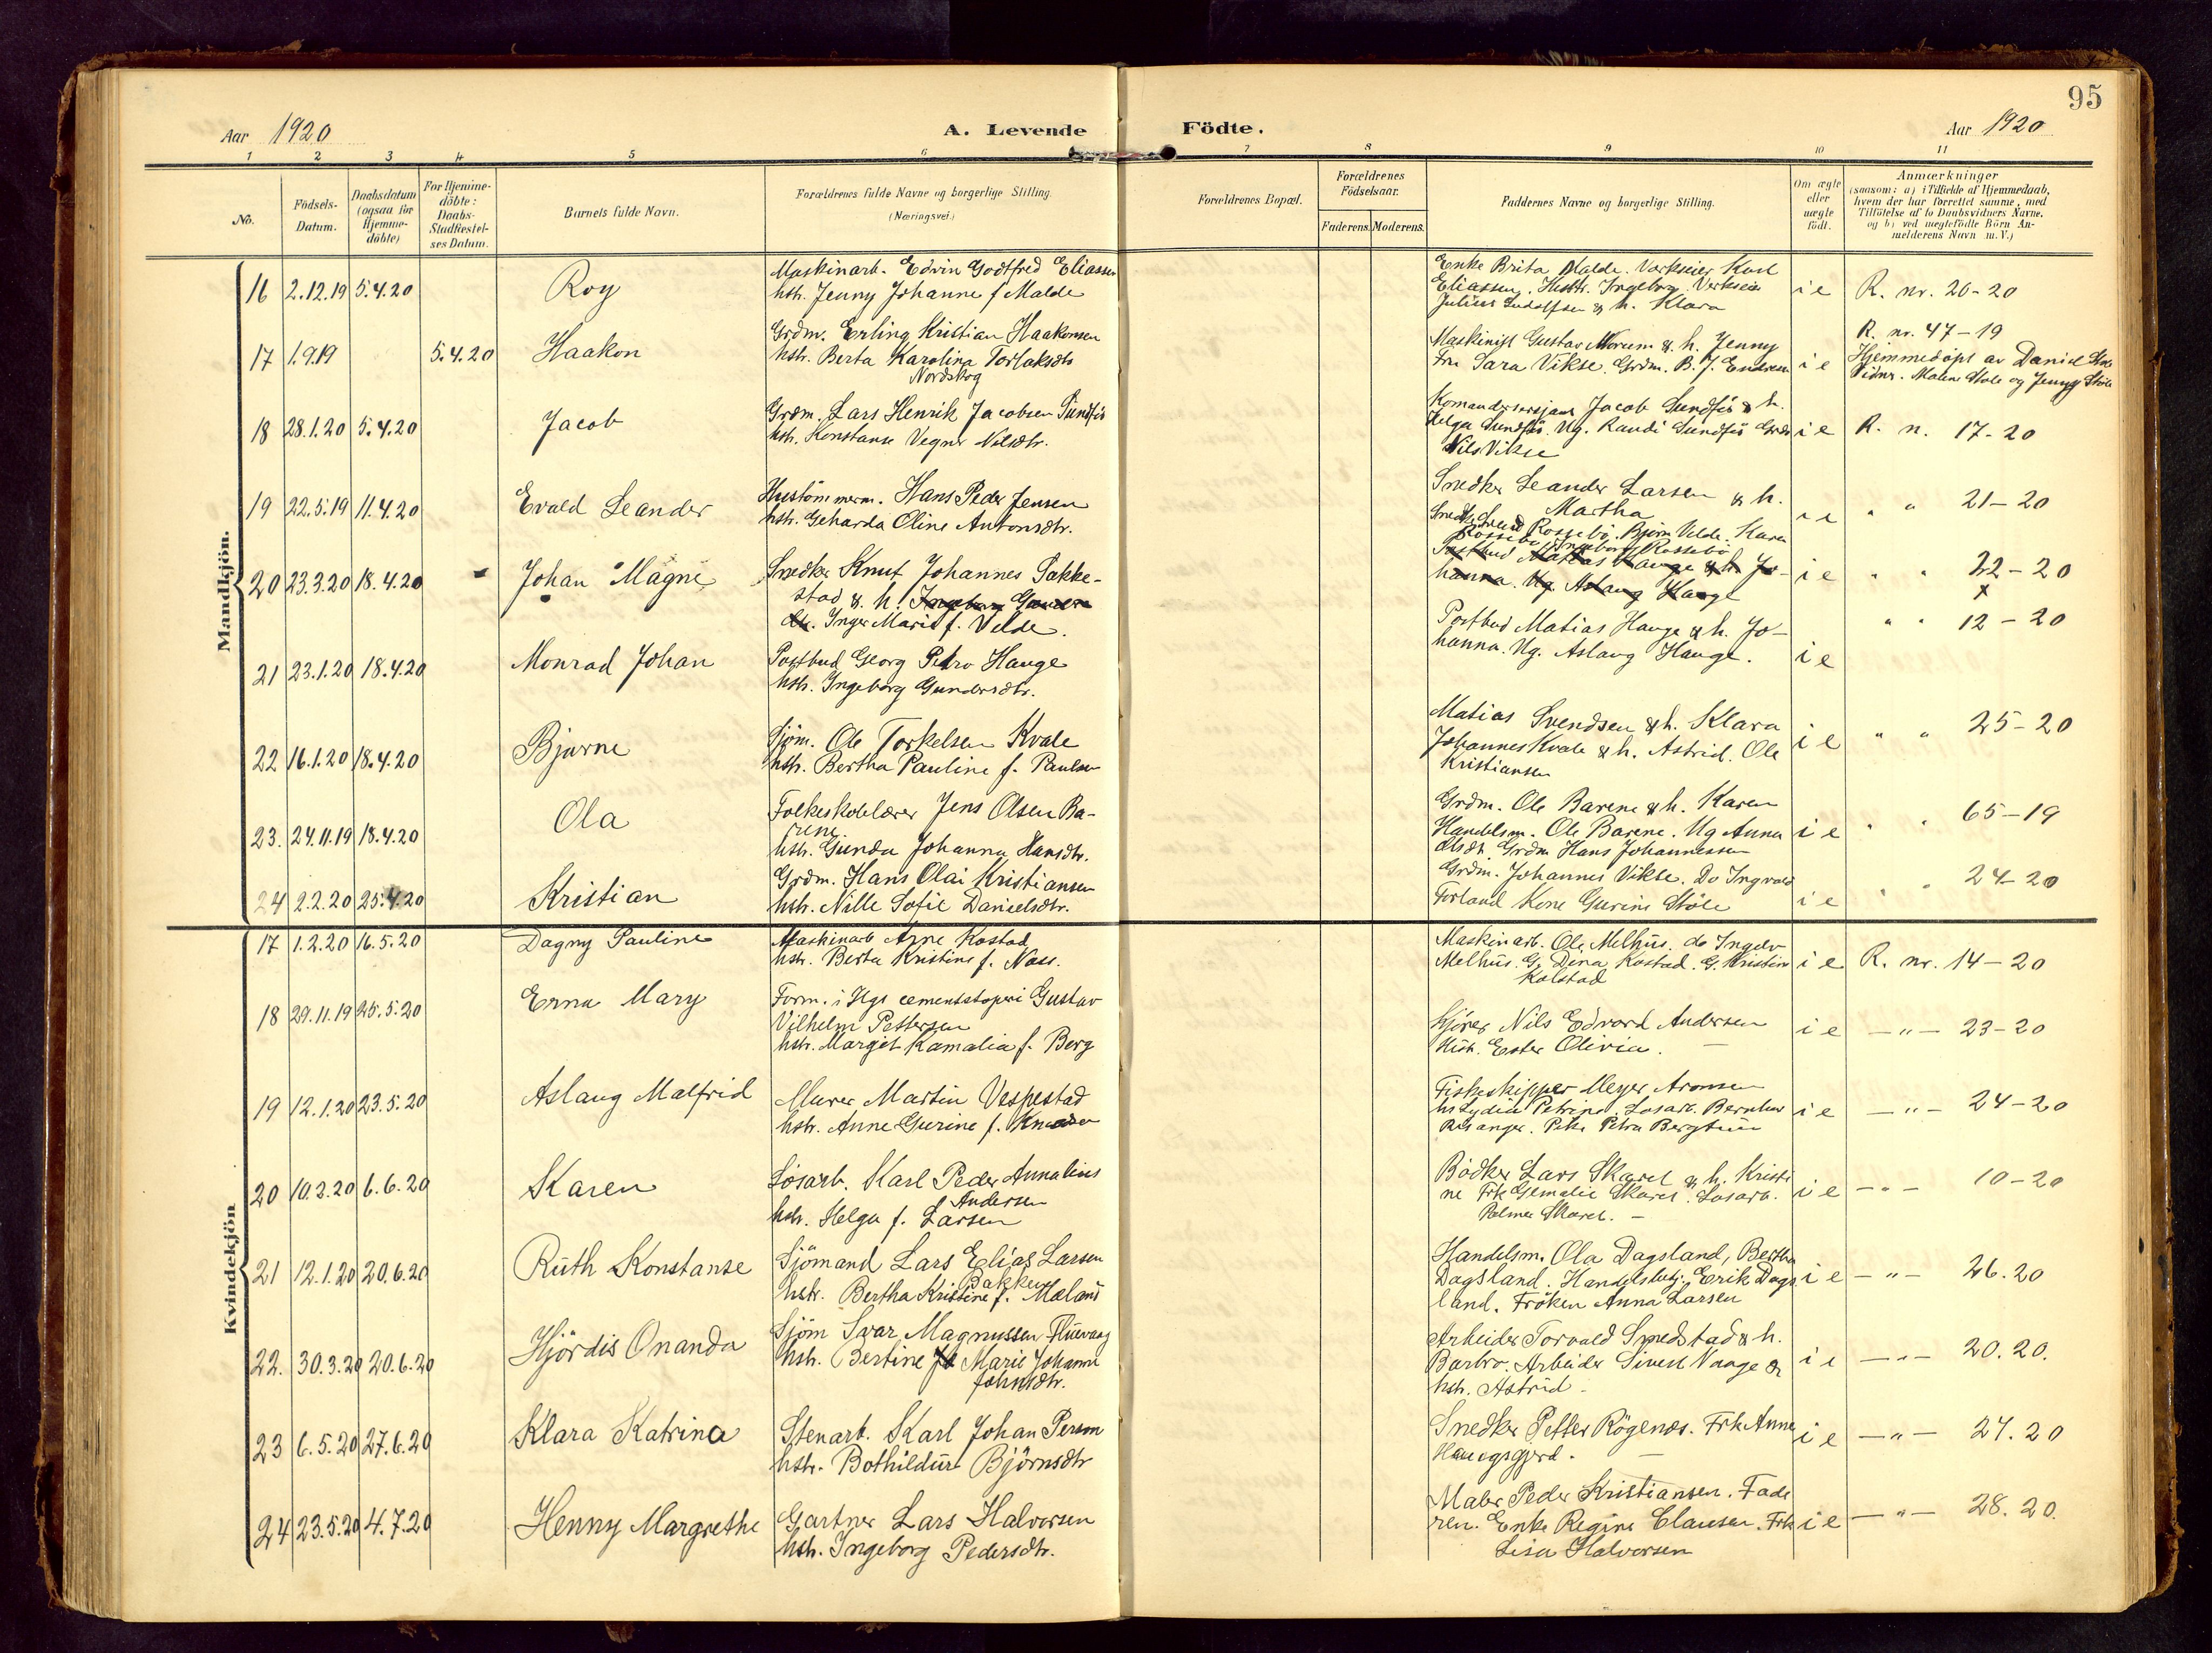 95
Aar 1920
A. Levende
Födte.
Aar 1920
1 2 3 4 5 6 7 8 9 10 11
No.
Födsels-
Datum.
Daabsdatum
(ogsaa for
Hjemme-
döbte)
For Hjemme-
döbte:
Daabs-
Stadfæstel-
ses Datum.
Barnets fulde Navn.
Forældrenes fulde Navne og borgerlige Stilling.
(Næringsvei.)
Forældrenes Bopæl.
Forældrenes
Födselsaar.
Faderens. Moderens.
Faddernes Navne og borgerlige Stilling.
Om ægte
eller
uægte
födt.
Anmærkninger
(saasom: a) i Tilfælde af Hjemmedaab,
hvem der har forrettet samme, med
Tilföielse af to Daabsvidners Navne,
og b) ved uægtefödte Börn An-
melderens Navn m. V.)
Mandkjön.
16 2.12.19 5.4.20 Roy
Maskinarb. Edvin Godtfred Eliassen
hstr. Jenny Johanne f. Malde
Enke Brita Malde. Verkseier Karl
Eliassen. Hustr. Ingeborg. Verkseier
Julius Ludolfsen & h. Klara
i e R. nr. 20-20
17 1.9.19 5.4.20 Haakon
Grdm. Erling Kristian Haakonsen
hstr. Berta Karolina Torlaksdtr
Nordskog
Maskinist Gustav Norum & h. Jenny
Fru Sara Vikse. Grdm. B. J. Endresen
i e
R. nr. 47-19
Hjemmedöpt av Daniel Stole
Vidner. Malene Stole og Jenny Stöle
18 28.1.20 5.4.20 Jacob
Grdm. Lars Henrik Jacobsen Sundför
hstr. Konstanse Vegner Nilsdtr.
Komandersersjant Jacob Sundför & h.
Helga Sundför. Ug. Randi Sundför Grdm
Nils Vikse
i e R. n. 17-20
19 22.5.19 11.4.20 Evald Leander
Hustömmerm. Hans Peder Jensen
hstr. Geharda Oline Antonsdtr.
Snedker Leander Larsen & h.
Martha
i e " " 21-20
20 23.3.20 18.4.20 Johan Magne
Snedker Knut Johannes Sakke-
stad & h. Ingeborg Gunders
dtr. Inger Marie f. Velde.
Rossebö. Björn Velde. Karen
Rossebö Ingeborg Rossebö
Postbud Matias Hauge & h. Jo-
hanna. Ug. Aslaug Hauge
i e " " 22-20
x
21 23.1.20 18.4.20 Monrad Johan
Postbud Georg Pedro Hauge
hstr. Ingeborg Gundersdtr.
Postbud Matias Hauge & h. Jo-
hanna. Ug. Aslaug Hauge.
i e " " 12-20
22 16.1.20 18.4.20 Bjarne
Sjöm. Ole Torkelsen Kvale
hstr. Bertha Pauline f. Paulsen
Matias Svendsen & h. Klara
Johannes Kvale & h. Astrid. Ole
Kristiansen
i e " " 25-20
23. 24.11.19 18.4.20 Ola
Folkeskolelærer Jens Olsen Ba-
rene.
hstr. Gunda Johanna Hansdtr.
Grdm. Ole Barene & h. Karen
Handelsm. Ole Barene. Ug Anna
Olsdtr. Grdm Hans Johannessen
i e " " 65-19
24 2.2.20 25.4.20 Kristian
Grdm. Hans Olai Kristiansen
hstr. Nille Sofie Danielsdtr.
Grdm. Johannes Vikse. Do Ingvald
Torland Kone Gurine Stöle
i e " " 24-20
Kvindekjön
17 1.2.20 16.5.20 Dagny Pauline
Maskinarb Arne Kostad
hstr. Berta Kristine f. Næss.
Maskinarb. Ole Melhus. do Ingolv
Melhus. G. Dina Kostad. G. Kristine
Kolstad
i e R. nr. 14-20
18 29.11.19 25.5.20 Erna Mary
Form. i Hgs cementstöperi Gustav
Vilhelm Pettersen
hstr. Margit Kamalia f. Berg
Nils Edvard Andersen
Hstr. Ester Olivia.
i e -"- 23-20
19 12.1.20 23.5.20 Aslaug Malfrid
Murer Martin Vespestad
hstr. Anne Gurine f.
Fiskeskipper Meyer Aronsen
hs Lydia Petrine. Losarb. Bernhar
. Pike Petra Bergtun
i e -"- 24-20
20 10.2.20 6.6.20 Karen
Lösarb. Karl Peder Annalius
Andersen
hstr. Helga f. Larsen
Bödker Lars Skaret & h. Kristi
ne Frk Gemalie Skaret. Losarb.
Palmer Skaret. -
i e -"- 10-20
21 12.1.20 20.6.20 Ruth Konstanse
Sjömand Lars Elias Larsen
Bakken
hstr. Bertha Kristine f. Mæland
Handelsm. Ola Dagsland, Bertha
Dagsland. Handelsbetj. Erik Dags
land. Fröken Anna Larsen
i e -"- 26.20
22. 30.3.20 20.6.20 Hjördis Onanda
Sjöm Ivar Magnussen Fluevaag
hstr. Bertine Marie Johanne
Johnsdtr.
Arbeider Torvald Smedstad & h.
Barbro. Arbeider Sivert Vaage &
hstr. Astrid -
i e -"- 20.20.
23 6.5.20 27.6.20 Klara Katrina
Stenarb. Karl Johan Person
hstr. Bothildur Björnsdtr
Snedker Petter Rögenæs. Frk Anne
Haugsgjerd.
i e -"- 27.20
24 23.5.20 4.7.20 Henny Margrethe
Gartner Lars Halvorsen
hstr. Ingeborg Pedersdtr.
Maler Peder Kristiansen. Fade
ren. Enke Regine Clausen. Frk
Lisa Halvorsen
i e -"- 28.20.